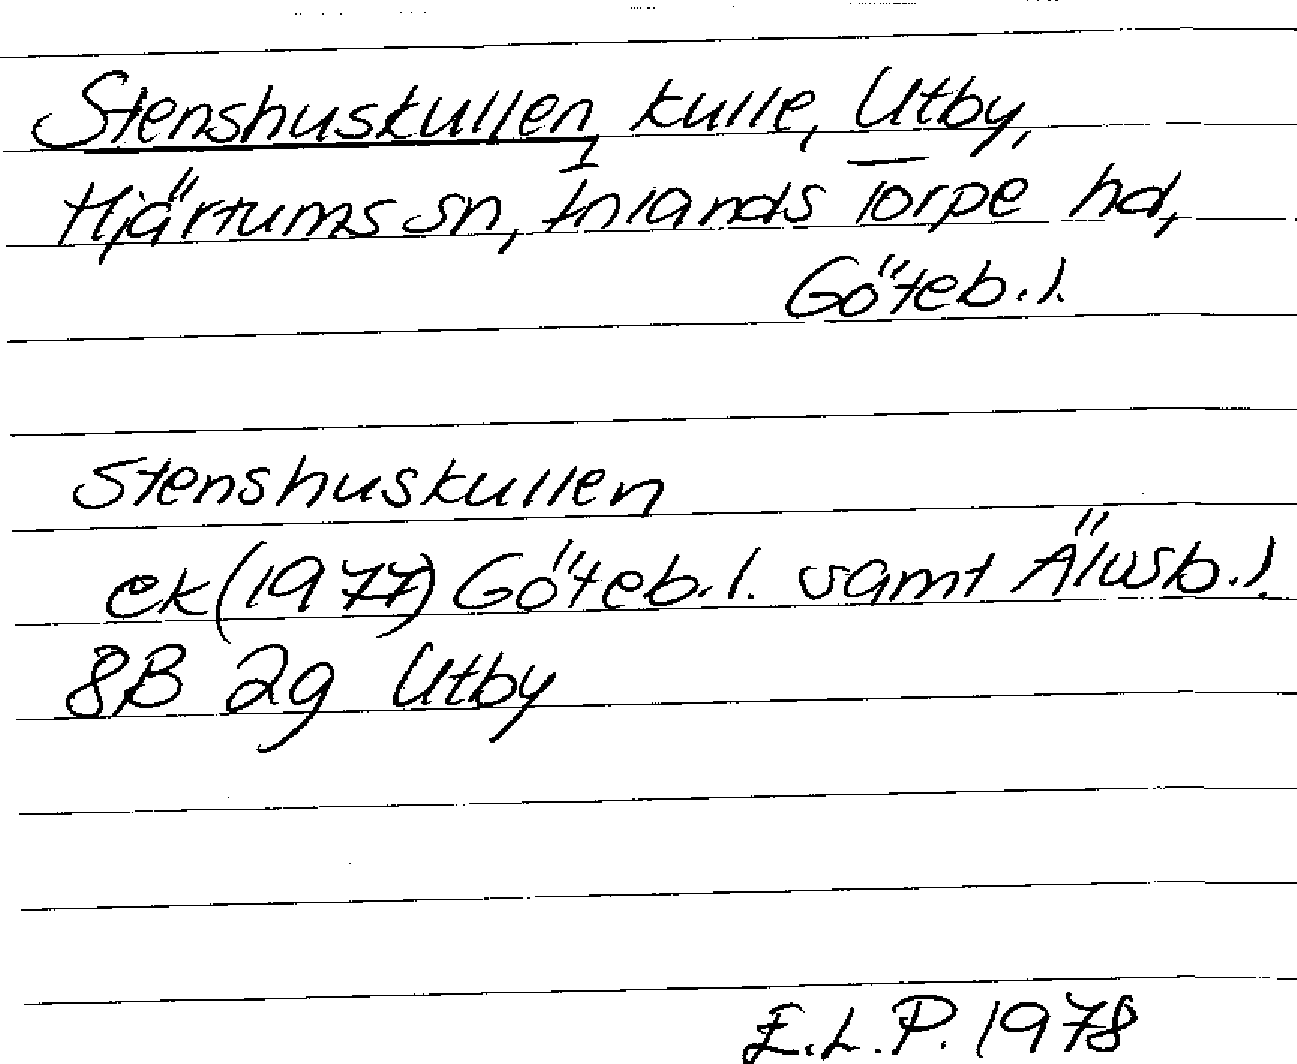 Stenshuskullen, kulle, Utby,
Hjärtums sn, Inlands Torpe hd,
Göteb.l.
Stenshuskullen
ek(1977) Göteb.l. samt Älvsb.l.
8B 2g Utby
E.L.P. 1978